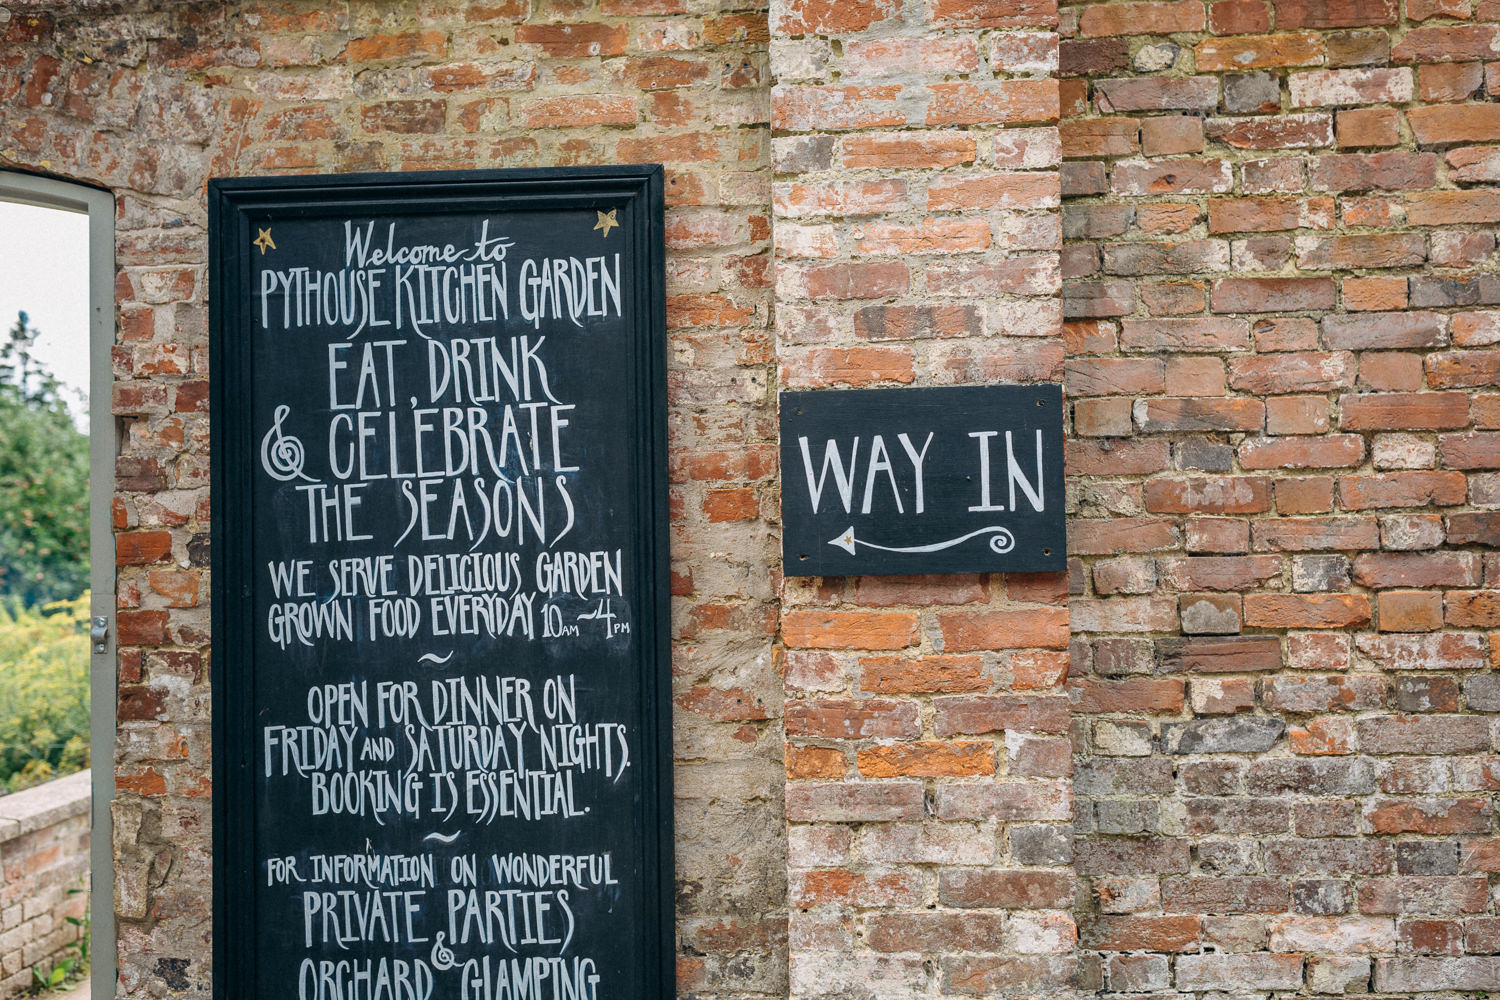 Welcome to
PYTHOUSE KITCHEN GARDEN
EAT, DRINK
& CELEBRATE
THE SEASONS
WE SERVE DELICIOUS GARDEN
GROWN FOOD EVERYDAY 10AM~4PM
~
OPEN FOR DINNER ON
FRIDAY AND SATURDAY NIGHTS.
BOOKING IS ESSENTIAL.
~
FOR INFORMATION ON WONDERFUL
PRIVATE PARTIES
&
ORCHARD GLAMPING
WAY IN